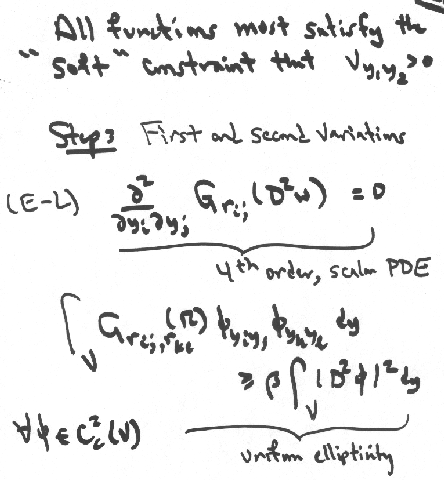 All functions must satisfy the
"soft" constraint that v_{y_1 y_2} > 0
Step 3 First and second variations
(E-L) \frac{\partial^2}{\partial y_i \partial y_j} G_{r_{ij}}(D^2 w) = 0
4th order, scalar PDE
\int_V G_{r_{ij}, r_{kl}}(R) \phi_{y_i y_j} \phi_{y_k y_l} dy
\geq \beta \int_V |D^2 \phi|^2 dy
\forall \phi \in C_c^2(V)
uniform ellipticity